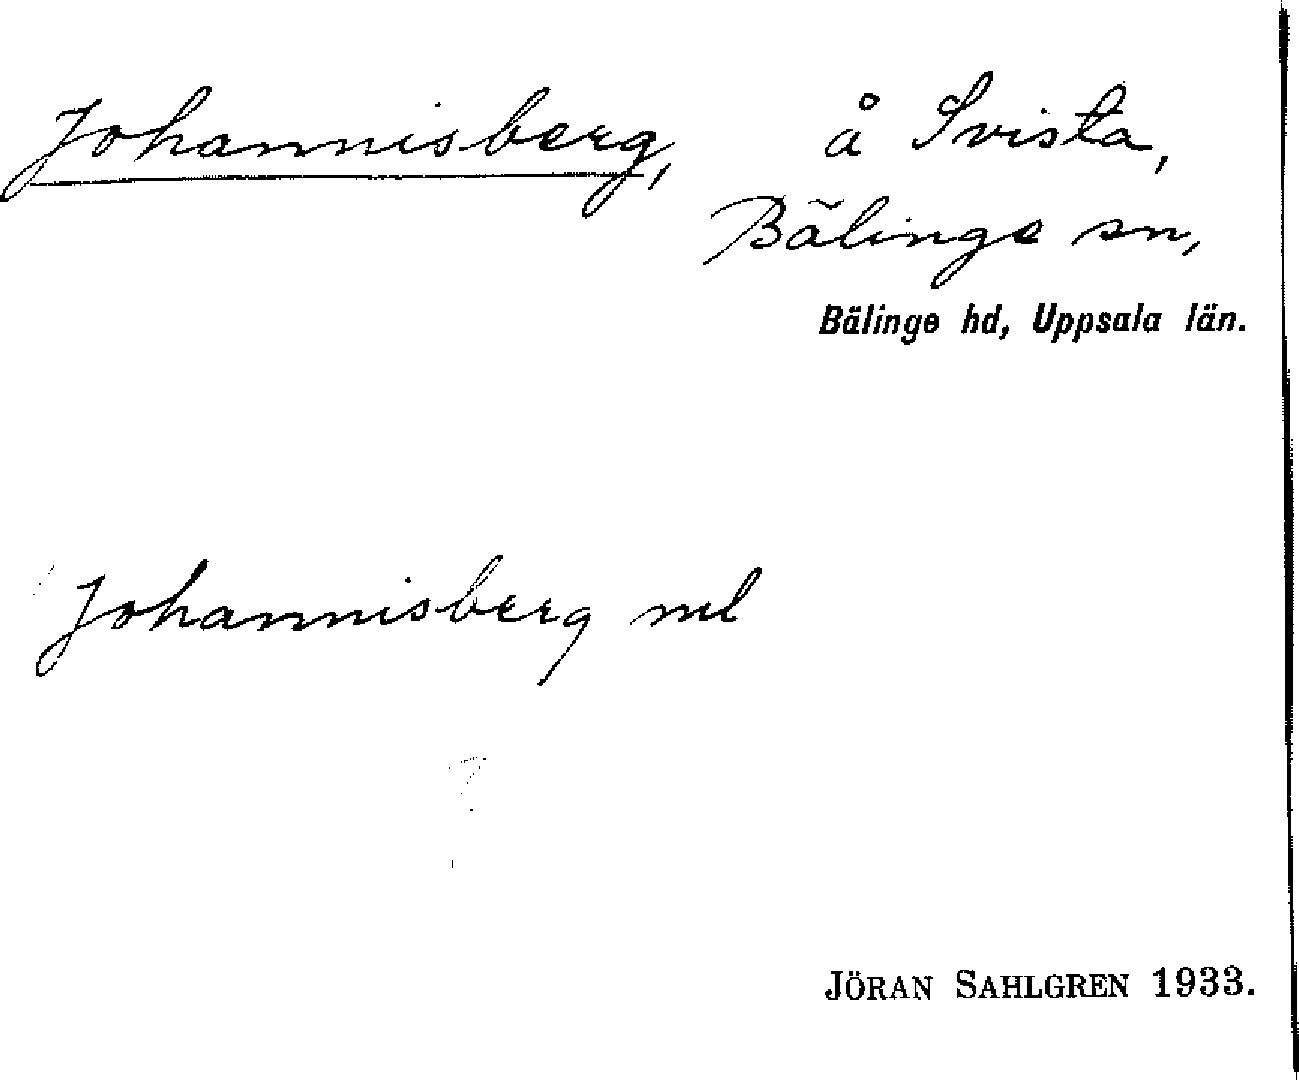 Johannisberg, å Svista,
Bälinge sn,
Bälinge hd, Uppsala län.
Johannisberg
JÖRAN SAHLGREN 1933.